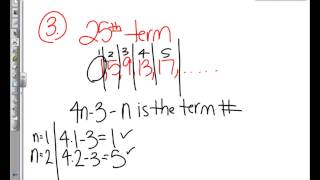 3. 25th term
1 2 3 4 5
1, 5, 9, 13, 17, .....
4n-3-n is the term #
n=1 4·1-3=1 ✓
n=2 4·2-3=5 ✓